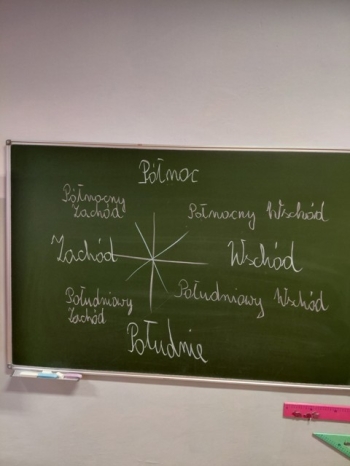 Północ
Północny
Zachód
Północny Wschód
Zachód
Wschód
Południowy
Zachód
Południowy Wschód
Południe